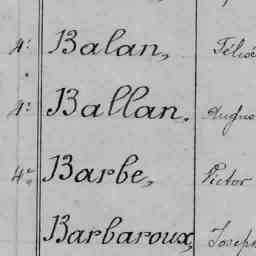 4: Balan, Félic
4: Ballan. Augus
4e Barbe, Victor
Barbaroux, Joseph